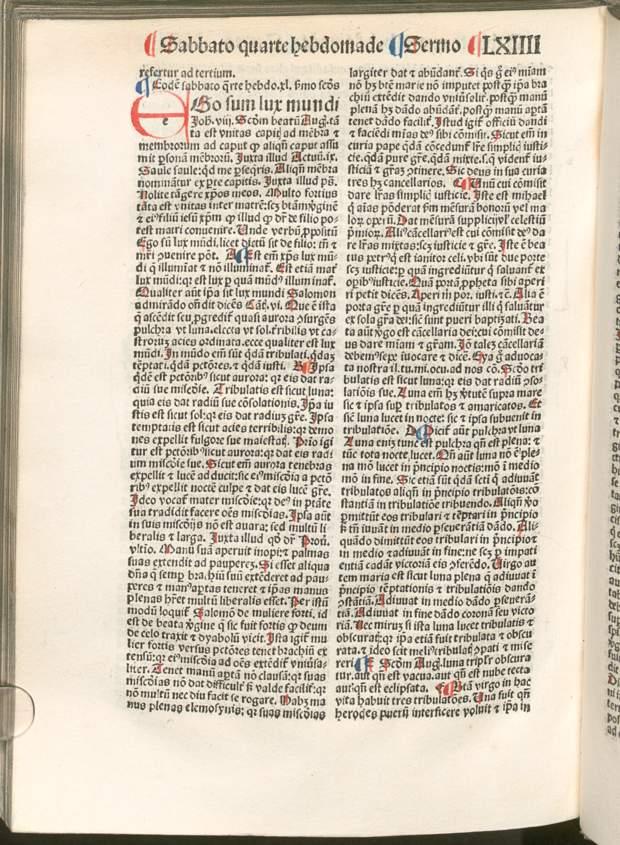 Sabbato quarte hebdomade Sermo LXIIII
refertur ad tertium.
Eodē sabbato q̄rte hebdo.xl. ẜmo scōs
Ego sum lux mundi
Joh. viij. Scōm beatū Aug. tā
ta est vnitas capitꝭ ad mēbra ⁊
membrorum ad caput ꝙ aliqn̄ caput assu
mit ꝑsonā mēbroꝝ. Juxta illud Actuū.ix.
Saule saule: qd me ꝑseqrꝭ. Aliqn̄ mēbra
nominātur ex ꝑte capitis. Juxta illud ps̄.
Nolite tāgere xp̄os meos. Multo fortius
tāta est vnitas inter matrē: scꝫ btām v̓ginē
⁊ eiꝰ filiū iesū xp̄m ꝙ illud ꝙ dr̄ de filio po
test matri conuenire. Unde verbū ꝓpositū
Ego sū lux mūdi, licet dictū sit de filio: tn̄ ⁊
mr̄i ꝯuenire pōt. Est em̄ xp̄s lux mū
di q illumīat ⁊ nō illuminat᷑. Est etiā mat̓
lux mūdi: qꝛ est lux ꝑ quā mūdꝰ illum inat᷑.
Qualiter aūt ip̄a sit lux mundi Salomon
admirādo oñdit dicēs Cāt. vi. Que ē ista
q̄ ascēdit sicut ꝓgredit᷑ quasi aurora ꝯsurgēs
pulchra vt luna. electa vt sol. t̓ribilis vt ca-
stroꝝ acies ordinata. ecce qualiter est lux
mūdi. In mūdo em̄ sūt qdā tribulati. qdaꝫ
tēptati. qdā pctōres. ⁊ qdā iusti. Ipsa
qdē est pctōribꝰ sicut aurora: qꝛ eis dat ra-
diū sue miscdie. Tribulatis est sicut luna:
quia eis dat radiū sue cōsolationis. Ip̄a iu
stis est sicut sol: qꝛ eis dat radiuꝫ gr̄e. Ipsa
temptatis est sicut acies terribilis: qꝛ demo
nes expellit fulgore sue maiestatꝭ. Prīo igi
tur est pctōribꝰ sicut aurora: qꝛ dat eis radi
um miscdie sue. Sicut em̄ aurora tenebras
expellit ⁊ lucē adducit: sic eiꝰ miscdia a pctō
ribꝰ expellit noctē culpe ⁊ dat eis lucē gr̄e.
Ideo vocat᷑ mater miscdie: qꝛ deꝰ in ptāte
sua tradidit facere oēs miscdias. Ipsa aūt
in suis miscdijs nō est auara: sed multū li
beralis ⁊ larga. Juxta illud qd dr̄ Prou.
vltīo. Manū suā aperuit inopi: ⁊ palmas
suas extendit ad pauperes. Si esset aliqua
dn̄a q̄ semꝑ brachiū suū extēderet ad pau-
peres ⁊ manꝰ aptas teneret ⁊ ip̄as manus
plenas hr̄et multū liberalis esset. Per istū
modū loquit᷑ Salomō de muliere forti. id
est de beata v̓gine q̄ sic fuit fortis ꝙ deum
de celo traxit ⁊ dyabolū vicit. Ista igit᷑ mu
lier fortis versus pctōres tenet brachiū ex
tensū: qꝛ eiꝰ miscdia ad oēs extēdit᷑ vniuersa-
liter. Tenet manū aptā nō clausā: qꝛ suas
miscdias nō dat difficulṫ sꝫ valde facilit̓: qꝛ
nō multū nec diu facit se rogare. Habꝫ ma
nus plenas elemosynis: qꝛ suas miscdias
largiter dat ⁊ abūdant̓. Si qs ḡ eiꝰ miam
nō hꝫ btē marie nō imputet postꝙ ip̄a bra
chiū extēdit dando vniūsalit̓. postꝙ manū
plenā hꝫ dādo abūdant̓. postꝙ manū aptā
tenet dādo facilit̓. Istud igit᷑ officiū dandi
⁊ faciēdi mīas deꝰ sibi cōmisit. Sicut em̄ in
curia pape qdā cōcedunt᷑ lr̄e simplicꝭ iusti-
cie. qdā pure gr̄e. qdā mixte. s. q vident᷑ iu-
sticiā ⁊ gr̄am ꝯtinere. Sic deus in sua curia
tres hꝫ cancellarios. Unū cui cōmisit
dare lr̄as simplicꝭ iusticie. Iste est mihael
q aīas pōderat ẜm mēsurā bonoꝝ vel ma
loꝝ opeꝝ. Dat mēsurā suppliciꝝ vel celestiū
p̄mioꝝ. Aliꝰ cācellariꝰ est cui cōmisit deꝰ da
re lr̄as mixtas: scꝫ iusticie ⁊ gr̄e. Iste ē bea
tus petrꝰ q est ianitor celi. vbi sūt due porte
scꝫ iusticie: ꝑ quā ingrediūtur q saluant᷑ ex
opibꝰ iusticie. Quā portā ꝓpheta sibi aperi
ri petit dicēs. Aperi m̄ por. iusti. ⁊c̄. Alia ē
porta gr̄e ꝑ quā ingrediūtur illi q saluātur
ex sola gr̄a dei: sic̄ sunt pueri baptizati. Bea
ta aūt v̓go est cācellaria dei: cui cōmisit de-
us dare miam ⁊ gr̄am. Iō talꝫ cācellariā
debemꝰ sepe iuocare ⁊ dicē. Eya ḡ aduoca-
ta nostra il. tu. mi. ocu. ad nos cō. Scdo tri
bulatis est sicut luna: qꝛ eis dat radiū ꝯso-
latiōis sue. Luna em̄ hꝫ v̓tutē supra mare
sic ⁊ ipsa suꝑ tribulatos ⁊ amaricatos. Et
sic̄ luna lucet in nocte: sic ⁊ ipsa subuenit in
tribulatiōe. Dicit᷑ aūt pulchra vt luna
Luna enī tunc est pulchra qn̄ est plena: ⁊
tūc tota nocte lucet. Qn̄ aūt luna nō ē ple-
na mō lucet in p̄ncipio noctis: mō ī medio
mō in fine. Sic etiā sūt qdā sctī q adiuuāt
tribulatos aliqn̄ in p̄ncipio tribulatōis: cō
stantiā in tribulatiōe tribuendo. Aliqn̄ ꝟo
ꝑmittūt eos tribulari ⁊ tēptari in p̄ncipio
sꝫ tn̄ iuuāt in medio ꝑseuerātiā dādo. Ali-
quādo dimittūt eos tribulari in p̄ncipio ⁊
in medio ⁊ adiuuāt in fine: ne scꝫ ꝑ impati
entiā cadāt victoriā eis ꝯferēdo. Uirgo au
tem maria est sicut luna plena q̄ adiuuat ī
p̄ncipio tēptationis ⁊ tribulatiōis dando
ꝯstātiā. Adiuuat in medio dādo ꝑseuerā-
tiā. Adiuuat in fine dādo coronā seu victo
riā. Nec miruꝫ si ista luna lucet tribulatis ⁊
obscuratꝭ: qꝛ ip̄a etiā fuit tribulata ⁊ obscu
rata. ⁊ ideo scit meliꝰ tribulatꝭ ꝯpati ⁊ mise
reri. Scōm Aug. luna tripl̓r obscura
tur. aut qn̄ est vacua. aut qn̄ est nube tecta
aut qn̄ est eclipsata. Btā virgo in hac
vita habuit tres tribulatōes. Una fuit qn̄
herodes pueꝝ interficere voluit ⁊ ip̄a in